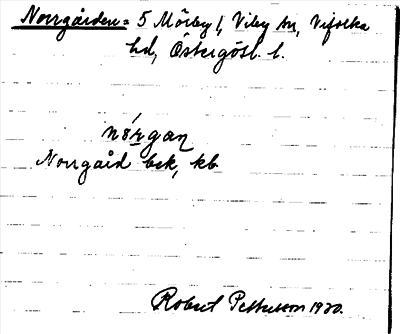 Norrgården = 5 Mörby 1, Viby sn, Vifolka
hd, Östergötl. l.
nórgan
Norrgård bsk, kb
Robert Pettersson 1920.